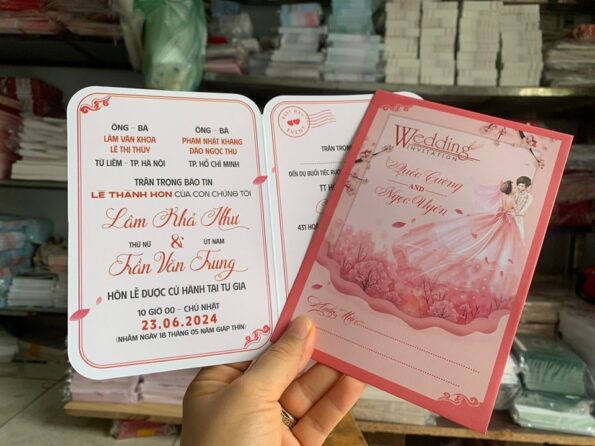 ÔNG - BÀ
LÂM VĂN KHOA
LÊ THỊ THÚY
TỪ LIÊM - TP. HÀ NỘI
ÔNG - BÀ
PHẠM NHẬT KHANG
ĐÀO NGỌC THU
TP. HỒ CHÍ MINH
TRÂN TRỌNG BÁO TIN
LỄ THÀNH HÔN CỦA CON CHÚNG TÔI
Lâm Khả Như
THỨ NỮ
&
ÚT NAM
Trần Văn Trung
HÔN LỄ ĐƯỢC CỬ HÀNH TẠI TƯ GIA
10 GIỜ 00 - CHỦ NHẬT
23.06.2024
(NHẰM NGÀY 18 THÁNG 05 NĂM GIÁP THÌN)
TRÂN TRỌNG
ĐẾN DỰ BUỔI TIỆC RƯỢU
TT H
431 HOÀ
Wedding
INVITATION
Quốc Cường
AND
Ngọc Uyên